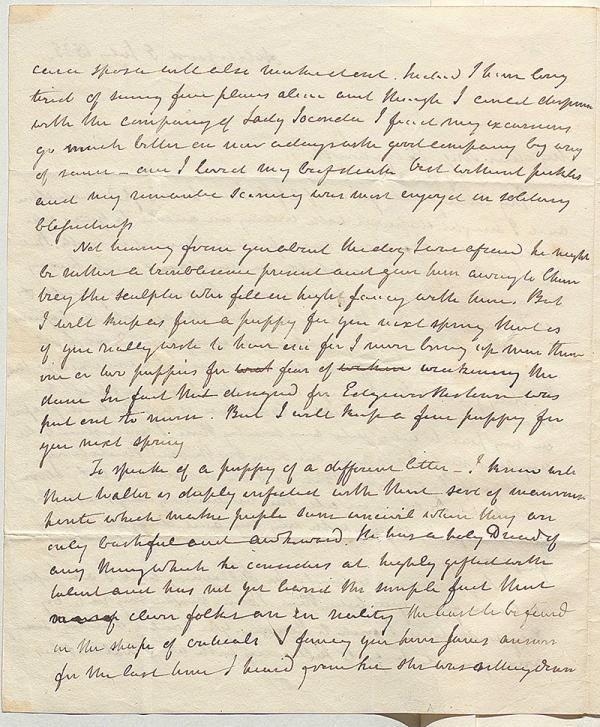 cara sposa will also make stout. Indeed I have long
tired of seeing fine places alone and though I could dispense
with the company of Lady Joconda I find my excursions
go much better on now a days with good company by way
of sauce - as I loved my beefsteak best without pickles
and my romantic scenery was most enjoyed in solitary
blessedness
Not hearing from you about the dog I was afraid he might
be rather a troublesome present and gave him away to Chan
trey the sculptor who fell in high fancy with him. But
I will keep as fine a puppy for you next spring that is
if you really wish to have one for I never bring up more than
one or two puppies for fear of weakening the
dam In fact that designed for Edgeworthstown was
put out to nurse. But I will keep a fine puppy for
you next spring
To speak of a puppy of a different litter - I know well
that Walter is deeply infected with that sort of mauvaise
honte which makes people seem uncivil when they are
only bashful and awkward. He has a holy Dread of
any thing which he considers as highly gifted with
talent and has not yet learnd the simple fact that
clever folks are in reality the least to be feard
in the shape of criticals I fancy you have Janes answer
for the last time I heard from her she was sitting down